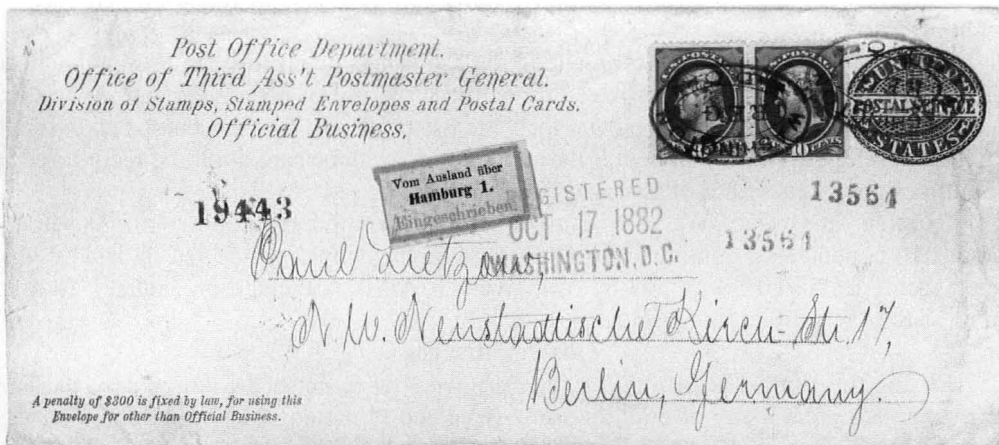 Post Office Department.
Office of Third Ass't Postmaster General.
Division of Stamps, Stamped Envelopes and Postal Cards.
Official Business.
U.S. POSTAGE
10 CENTS
UNITED
POSTAL SERVICE
STATES
Vom Ausland über
Hamburg 1.
Eingeschrieben.
19443
REGISTERED
OCT 17 1882
WASHINGTON, D.C.
13564
13564
Paul Lietzow,
N. W. Neustadtische Kirch-Str. 17,
Berlin, Germany.
A penalty of $300 is fixed by law, for using this
Envelope for other than Official Business.